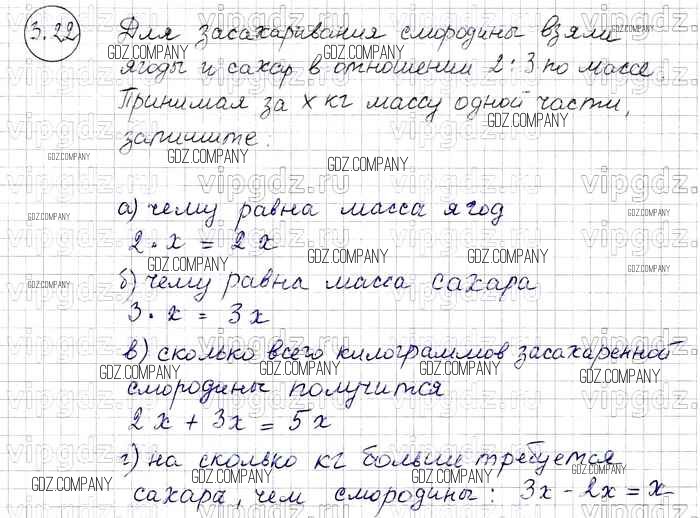 3.22 Для засахаривания смородины взяли
ягоды и сахар в отношении 2:3 по массе.
Принимая за х кг массу одной части,
запишите:
а) чему равна масса ягод
2 · х = 2х
б) чему равна масса сахара
3 · х = 3х
в) сколько всего килограммов засахаренной
смородины получится
2х + 3х = 5х
г) на сколько кг больше требуется
сахара, чем смородины: 3х - 2х = х